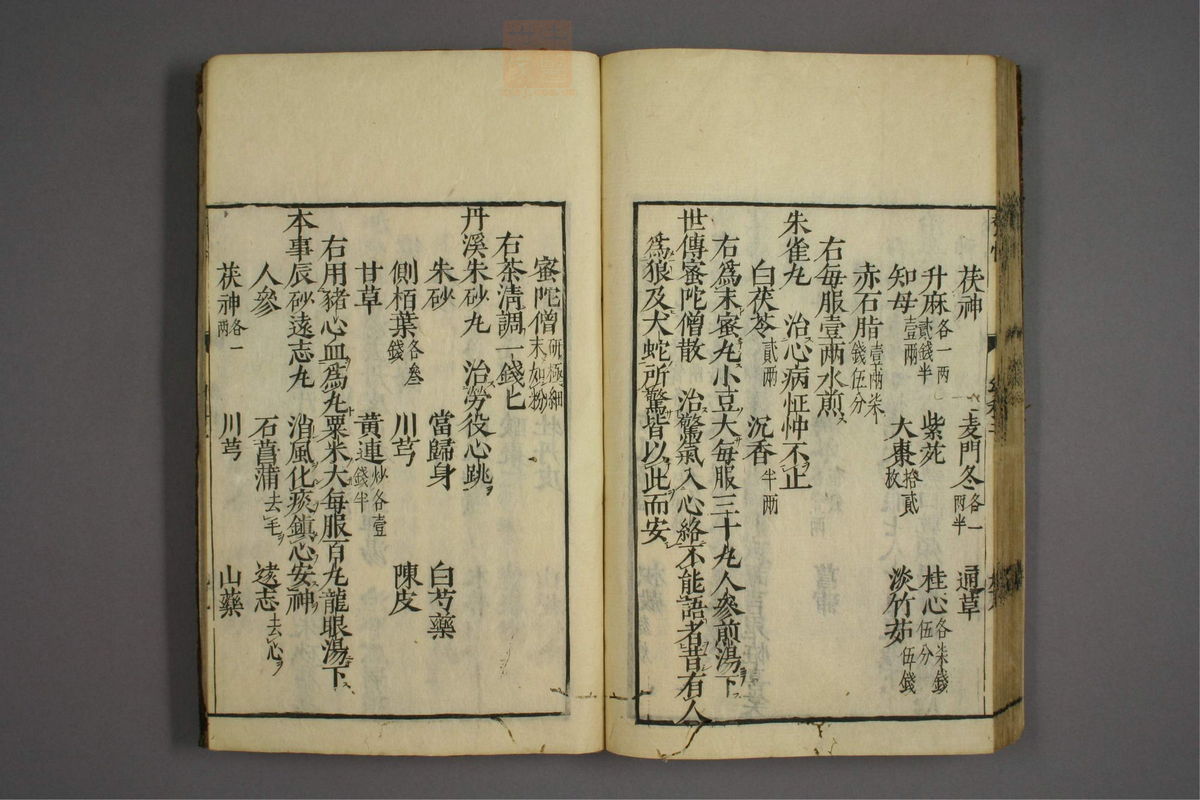 茯神 麦門冬各一兩半 通草
升麻各一兩貳錢半 紫菀 桂心各柒錢伍分
知母壹兩 大棗拾貳枚 淡竹茹伍錢
赤石脂壹兩柒錢伍分
右每服壹兩水煎ス
朱雀丸 治心病怔忡不止
白茯苓貳兩 沉香半兩
右爲末蜜丸小豆大每服三十丸人參煎湯下ス
世傳蜜陀僧散 治驚氣入心絡不能語者昔有人
爲狼及犬蛇所驚皆以此而安
蜜陀僧研極細末如粉
右茶清調一錢匕
丹溪朱砂丸 治勞役心跳
朱砂 當歸身 白芍藥
側栢葉各叁錢 川芎 陳皮
甘草 黃連炒各壹錢半
右用豬心血爲丸粟米大每服百丸龍眼湯下ス
本事辰砂遠志丸 消風化痰鎮心安神
人參 石菖蒲去毛 遠志去心
茯神各一兩 川芎 山藥